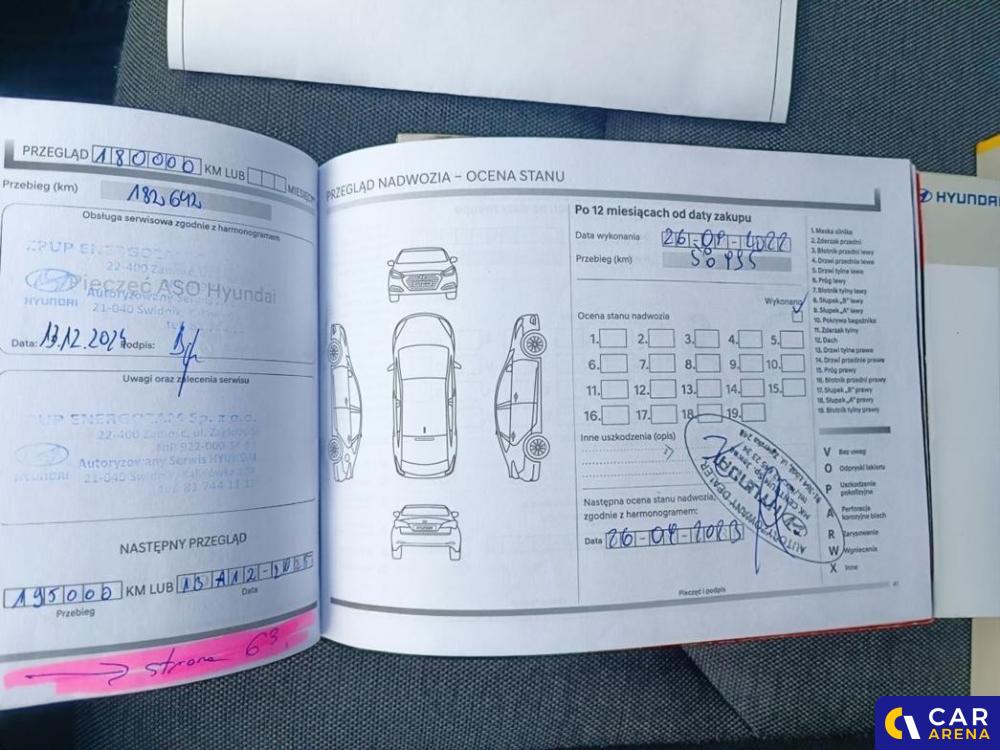 PRZEGLĄD 180000 KM LUB MIESIĘCY
Przebieg (km) 182642
Obsługa serwisowa zgodnie z harmonogramem
ZPUP ENERGOZAM
22-400 Zamość
Pieczęć ASO Hyundai
HYUNDAI Autoryzowany
21-040 Świdnik
Data: 13.12.2024 Podpis:
Uwagi oraz zalecenia serwisu
ZPUP ENERGOZAM Sp. z o.o.
22-400 Zamość, ul.
NIP 922-000
Autoryzowany Serwis HYUNDAI
HYUNDAI 21-040 Świdnik
NASTĘPNY PRZEGLĄD
195000 KM LUB
Przebieg Data
strona 63
PRZEGLĄD NADWOZIA – OCENA STANU
Po 12 miesiącach od daty zakupu
Data wykonania
Przebieg (km)
Wykonano
Ocena stanu nadwozia
1. 2. 3. 4. 5.
6. 7. 8. 9. 10.
11. 12. 13. 14. 15.
16. 17. 18. 19.
Inne uszkodzenia (opis)
Następna ocena stanu nadwozia,
zgodnie z harmonogramem:
Data
AUTORYZOWANY DEALER
Pieczęć i podpis
41
1. Maska silnika
2. Zderzak przedni
3. Błotnik przedni lewy
4. Drzwi przednie lewe
5. Drzwi tylne lewe
6. Próg lewy
7. Błotnik tylny lewy
8. Słupek „B” lewy
9. Słupek „A” lewy
10. Pokrywa bagażnika
11. Zderzak tylny
12. Dach
13. Drzwi tylne prawe
14. Drzwi przednie prawe
15. Próg prawy
16. Błotnik przedni prawy
17. Słupek „B” prawy
18. Słupek „A” prawy
19. Błotnik tylny prawy
V Bez uwag
O Odpryski lakieru
P Uszkodzenie
pokolizyjne
A Perforacja
korozyjna blach
R Zarysowanie
W Wgniecenie
X Inne
HYUNDAI
CAR
ARENA